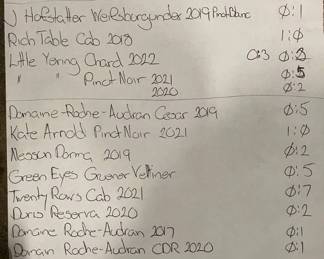 J Hofstatter Weissburgunder 2019 Pinot Blanc 0:1
Rich Table Cab 2018 1:0
Little Yering Chard 2022 0:3 0:3
" " Pinot Noir 2021 0:5
2020 0:2
Domaine-Roche-Audran Cesar 2019 0:5
Kate Arnold Pinot Noir 2021 1:0
Nessun Dorma 2019 0:2
Green Eyes Gruener Veltiner 0:5
Twenty Rows Cab 2021 0:7
Duris Reserva 2020 0:2
Domaine Roche-Audran 2017 0:1
Domain Roche-Audran CDR 2020 0:1